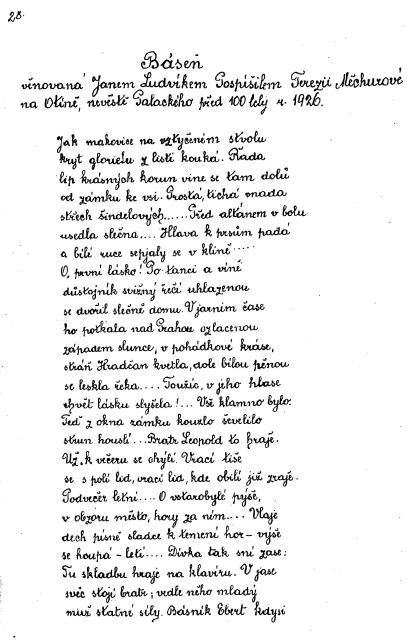 28.
Báseň
věnovaná Janem Ludvíkem Pospíšilem Terezii Měchurové
na Otíně, nevěstě Palackého před 100 lety r. 1926.
Jak makovice na vztyčeném stvolu
kryt glorietu z listí kouká. Řada
lip krásných korun vine se tam dolů
od zámku ke vsi. Prostá, tichá vnada
střech šindelových..... Před altánem v bolu
usedla slečna.... Hlava k prsům padá
a bílé ruce sepjaly se v klíně.....
O, první lásko! Po tanci a víně
důstojník svižný řečí uhlazenou
se dvořil slečně domu. V jarním čase
ho potkala nad Prahou ozlacenou
západem slunce, v pohádkové kráse,
stráň Hradčan kvetla, dole bílou pěnou
se leskla řeka.... Toužíc, v jeho hlase
chvět lásku slyšela!... Vše klamno bylo.
Teď z okna zámku kouzlo ševelilo
strun houslí... Bratr Leopold to hraje.
Už k večeru se chýlí. Vrací tiše
se s polí lid, orací lid, kde obilí již zraje.
Podvečer letní.... O vstarobylé pýše,
v obzoru město, hory za ním.... Vlaje
dech písně sladce k temeni hor – výše
se houpá – letí.... Dívka tak sní zase:
Tu skladbu hraje na klavíru. V jase
svěc stojí bratr; vedle něho mladý
muž statné síly. Básník Ebert kdysi